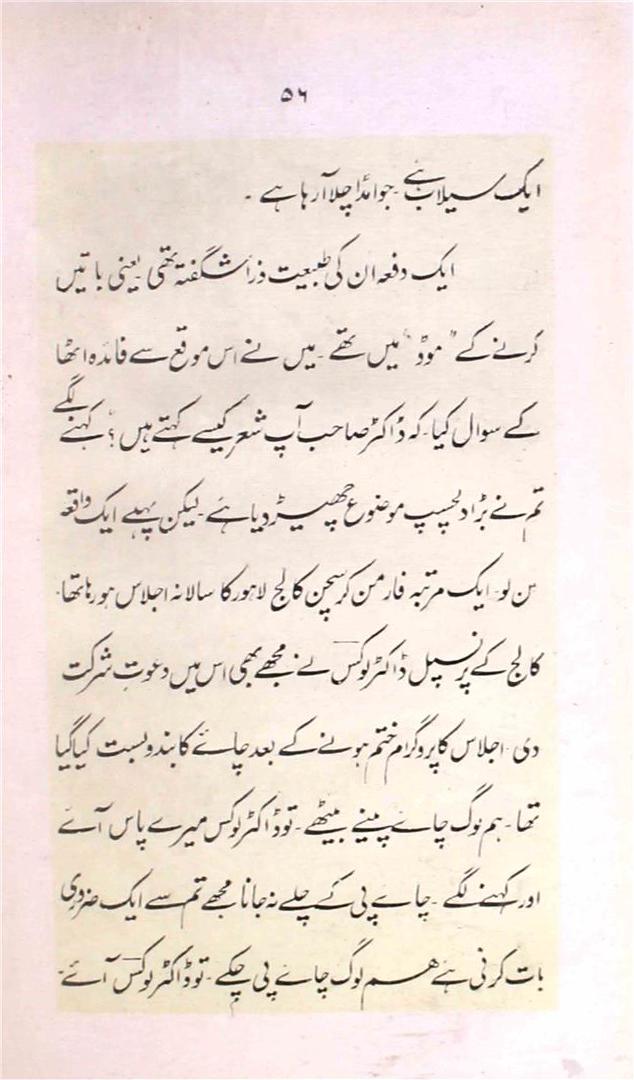 ۵۶
ایک سیلاب ہے ۔ جو امڈا چلا آ رہا ہے ۔
ایک دفعہ ان کی طبیعت ذرا شگفتہ تھی ۔ یعنی باتیں
کرنے کے "موڈ" میں تھے ۔ میں نے اس موقع سے فائدہ اٹھا
کے سوال کیا ۔ کہ ڈاکٹر صاحب آپ شعر کیسے کہتے ہیں ؟ کہنے لگے
تم نے بڑا دلچسپ موضوع چھیڑ دیا ہے ۔ لیکن پہلے ایک واقعہ
سن لو ۔ ایک مرتبہ فارمن کرسچن کالج لاہور کا سالانہ اجلاس ہو رہا تھا ۔
کالج کے پرنسپل ڈاکٹر لوکس نے مجھے بھی اس میں دعوتِ شرکت
دی ۔ اجلاس کا پروگرام ختم ہونے کے بعد چائے کا بندوبست کیا گیا
تھا ۔ ہم لوگ چائے پینے بیٹھے ۔ تو ڈاکٹر لوکس میرے پاس آئے
اور کہنے لگے ۔ چائے پی کے چلے نہ جانا مجھے تم سے ایک ضروری
بات کرنی ہے ہم لوگ چائے پی چکے ۔ تو ڈاکٹر لوکس آئے ۔